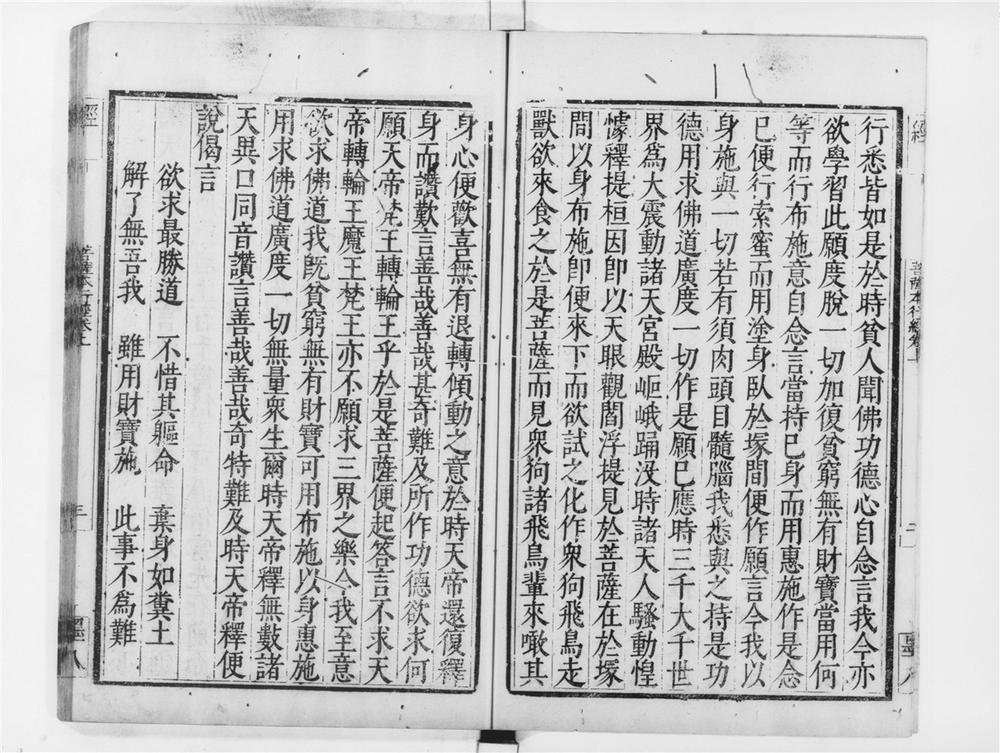 行悉皆如是於時貧人聞佛功德心自念言我今亦
欲學習此願度脫一切加復貧窮無有財寶當用何
等而行布施意自念言當持已身而用惠施作是念
已便行索蜜而用塗身臥於塚間便作願言今我以
身施與一切若有須肉頭目髓腦我悉與之持是功
德用求佛道廣度一切作是願已應時三千大千世
界為大震動諸天宮殿岠峨踊没時諸天人騷動惶
懅釋提桓因即以天眼觀閻浮提見於菩薩在於塚
間以身布施即便來下而欲試之化作衆狗飛鳥走
獸欲來食之於是菩薩而見衆狗諸飛鳥輩來噉其
菩薩本行經卷上
二
身心便歡喜無有退轉傾動之意於時天帝還復釋
身而讚歎言善哉善哉甚奇難及所作功德欲求何
願天帝梵王轉輪王乎於是菩薩便起答言不求天
帝轉輪王魔王梵王亦不願求三界之樂今我至意
欲求佛道我既貧窮無有財寶可用布施以身惠施
用求佛道廣度一切無量衆生爾時天帝釋無數諸
天異口同音讚言善哉善哉奇特難及時天帝釋便
說偈言
欲求最勝道　不惜其軀命　棄身如糞土
解了無吾我　雖用財寶施　此事不為難
菩薩本行經卷上
三